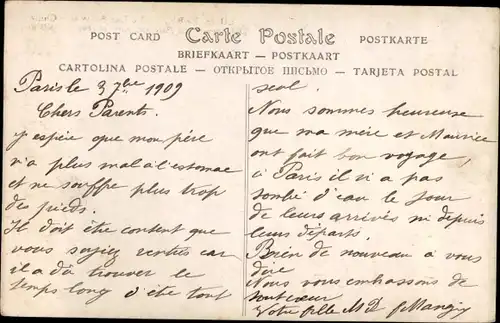 POST CARD
Carte Postale
POSTKARTE
BRIEFKAART — POSTKAART
CARTOLINA POSTALE — ОТКРЫТОЕ ПИСЬМО — TARJETA POSTAL
Paris le 3 7bre 1909
Chers Parents.
J'espère que mon père
n'a plus mal à l'estomac
et ne souffre plus trop
des pieds.
Il doit être content que
vous soyiez rentrés car
il a dû trouver le
temps long d'être tout
seul.
Nous sommes heureuse
que ma mère et Maurice
ont fait bon voyage,
à Paris il n'a pas
tombé d'eau le jour
de leurs arrivés ni depuis
leurs départs.
Rien de nouveau a vous
dire
Nous vous embrassons de
tout cœur
Votre fille M